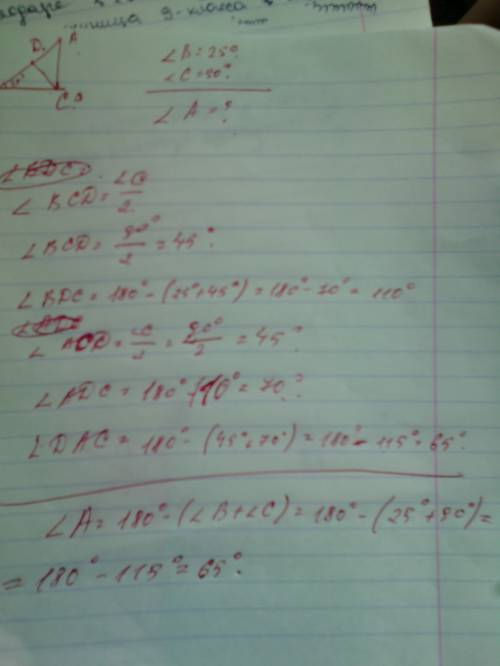 9-класса
D A
25°
C
∠B = 25°
∠C = 90°
∠A = ?
∠BCD = ∠C/2
∠BCD = 90°/2 = 45°
∠BDC = 180° - (25° + 45°) = 180° - 70° = 110°
∠ACD = ∠C/2 = 90°/2 = 45°
∠ADC = 180° - 110° = 70°
∠DAC = 180° - (45° + 70°) = 180° - 115° = 65°
∠A = 180° - (∠B + ∠C) = 180° - (25° + 90°) =
= 180° - 115° = 65°